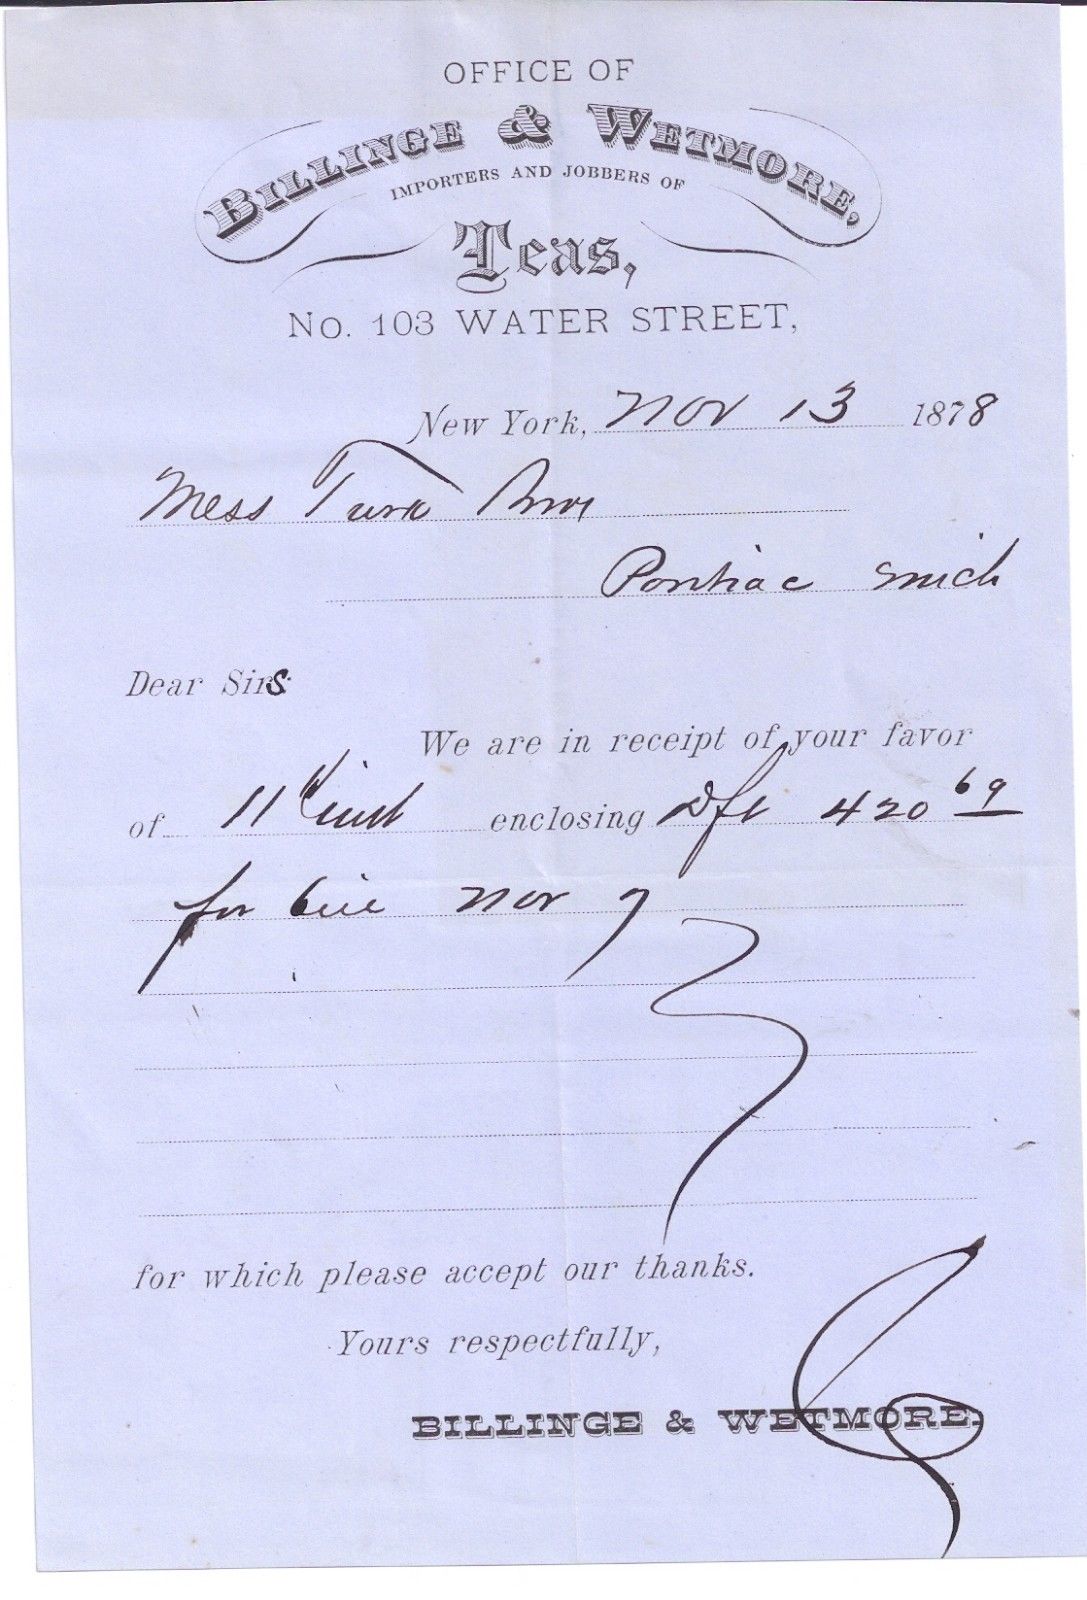 OFFICE OF
BILLINGE & WETMORE,
IMPORTERS AND JOBBERS OF
Teas,
No. 103 WATER STREET,
New York, Nov 13 1878
Mess Turk Bros
Pontiac Mich
Dear Sirs
We are in receipt of your favor
of 11th inst enclosing Dft 420 69
for bill Nov 7
for which please accept our thanks.
Yours respectfully,
BILLINGE & WETMORE.